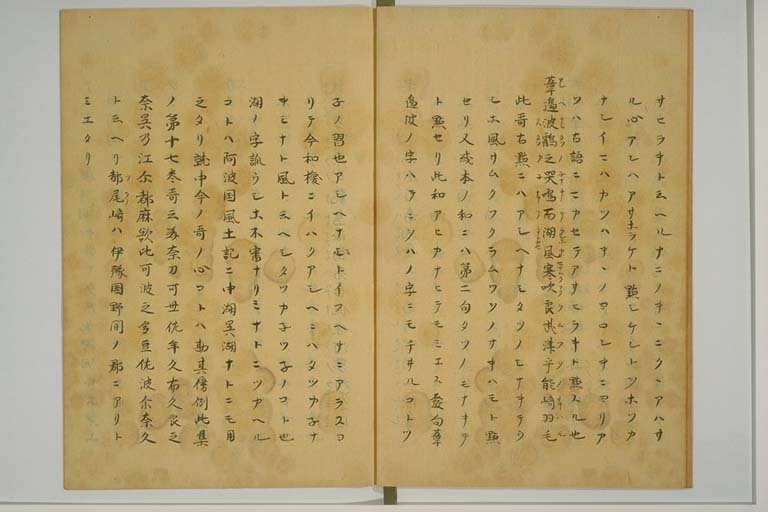 サヒラキト云ヘルナニノキニニククアハサ
ル心アシハアサホラケト點シケントンホツカ
ナシイニハカツハキンノヨロシキニヨリア
ツハ古語ニニカセラアサヒラキト點スル也
葦邊波鶴之哭鳴而湖風寒吹良武津乎能崎羽毛
此哥古點ニハアシヘナミタツノミナキテシ
ミホ風サムクフクラムツヲノサキハモト點
セリ又或本ノ和ニハ第二句タツノミナキテ
ト點セリ此和アヒカナヒテモミエス發句葦
邊波ノ字ハヲニツハノ字ニモチヰルコトツ
子ノ習也アシヘナミトイフヘキニアラスコ
リテ今和換ニイハクアシヘニハタツカ子ナ
キミナト風ト云ヘシタツカ子ツ子ノコト也
湖ノ字訓ウシホ木審ナリミナトニツカヘル
コトハ阿波国風土記ニ中湖奥湖ナトニモ用
之タリ就中今ノ哥ノ心コトハ勘其傍例此集
ノ第十七巻哥云美奈刀可世佐牟久布久良之
奈呉乃江尓都麻欲比可波之多豆佐波尓奈久
ト云ヘリ都尾崎ハ伊豫国野間ノ郡ニアリト
ミエタリ